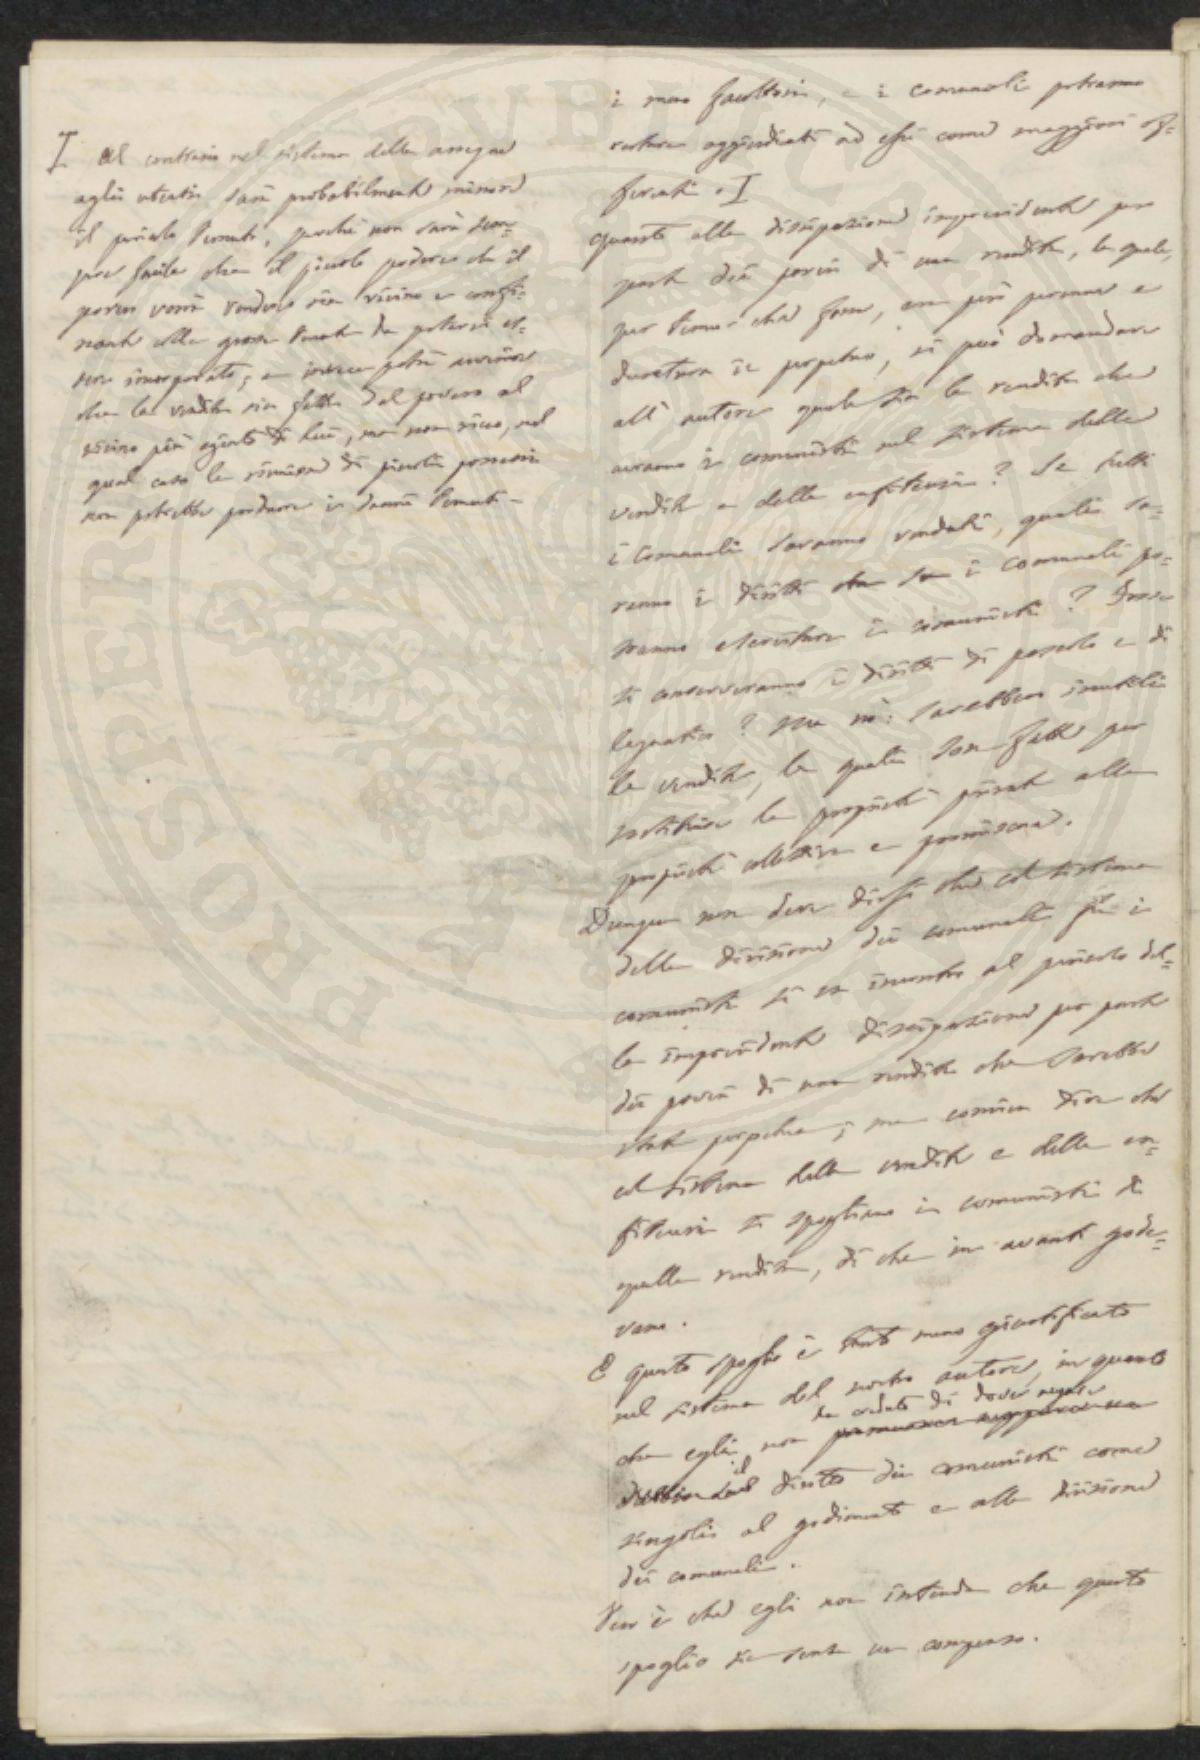 I Al contrario nel sistema delle assegne
agli utenti sarà probabilmente minore
il pericolo temuto, perché non sarà sem-
pre facile che il piccolo podere che il
povero vorrà vendere sia vicino e confi-
nante alla grossa tenuta da potervi es-
sere incorporato; e invece potrà avvenire
che la vendita sia fatta dal povero al
vicino più agiato di lui, ma non ricco, nel
qual caso la riunione di piccoli possessi
non potrebbe produrre i danni temuti -
i meno facoltosi, e i comunali potranno
restare aggiudicati ad essi come maggiori of-
ferenti. I
Quanto alla dissipazione imprevidente per
parte dei poveri di una rendita, la quale,
per tenue che fosse, era però perenne e
duratura in perpetuo, si può domandare
all'autore quale sia la rendita che
avranno i comunisti nel sistema delle
vendite e delle enfiteusi? Se tutti
i comunali saranno venduti, quali sa-
ranno i diritti che su i comunali po-
tranno esercitare i comunisti? Forse
si conserveranno i diritti di pascolo e di
legnatico? Ma no: sarebbero inutili
le vendite, le quali son fatte per
sostituire la proprietà privata alla
proprietà collettiva e promiscua.
Dunque non deve dirsi che col sistema
della divisione dei comunali fra i
comunisti si va incontro al pericolo del-
la imprevidente dissipazione per parte
dei poveri di una rendita che sarebbe
stata perpetua; ma convien dire che
col sistema delle vendite e delle en-
fiteusi si spogliano i comunisti di
quella rendita, di che in avanti gode-
vano.
E questo spoglio è tanto meno giustificato
nel sistema del nostro autore, in quanto
ha creduto di dover negare
che egli non
il diritto dei comunisti come
singoli al godimento e alla divisione
dei comunali.
Vero è che egli non intende che questo
spoglio sia senza un compenso.